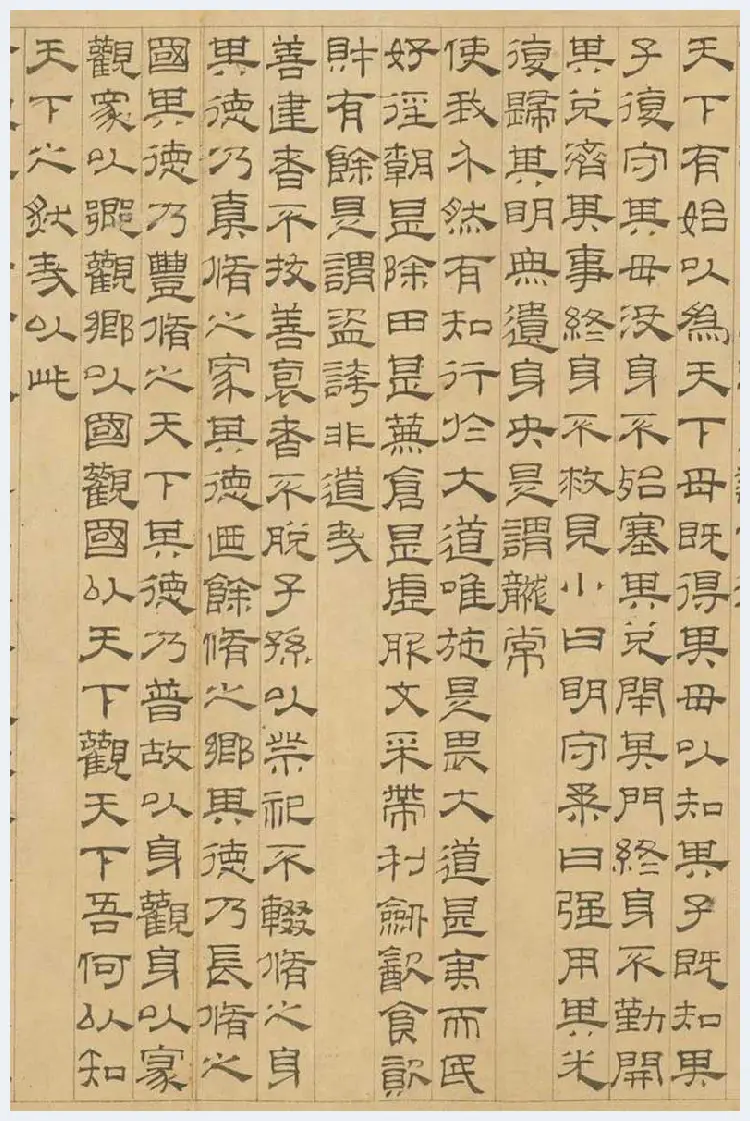 天下有始以為天下母既得其母以知其子既知其
子復守其母没身不殆塞其兌閉其門終身不勤開
其兌濟其事終身不救見小曰明守柔曰强用其光
復歸其明無遺身央是謂襲常
使我介然有知行於大道唯施是畏大道甚夷而民
好徑朝甚除田甚蕪倉甚虛服文采帶利劒飲食資
財有餘是謂盜誇非道哉
善建者不拔善裒者不脫子孫以祭祀不輟脩之身
其德乃真脩之家其德迺餘脩之鄉其德乃長脩之
國其德乃豐脩之天下其德乃普故以身觀身以家
觀家以鄉觀鄉以國觀國以天下觀天下吾何以知
天下之然哉以此